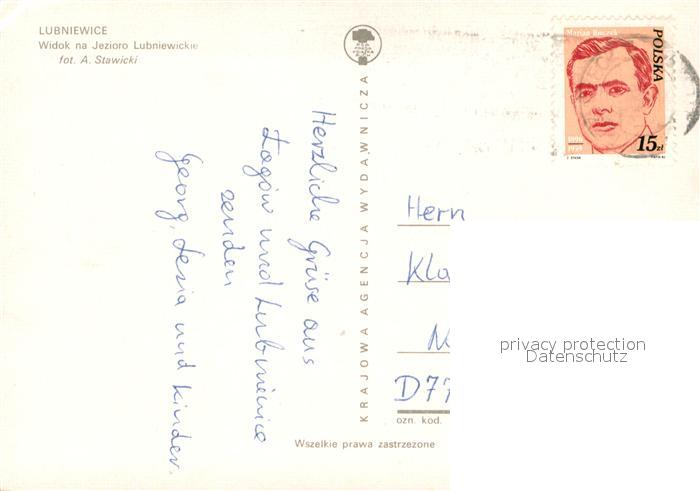 LUBNIEWICE
Widok na Jezioro Lubniewickie
fot. A. Stawicki
Herzliche Grüse aus
Łagów und Lubniewice
senden
Georg, Lesia und Kinder.
KRAJOWA AGENCJA WYDAWNICZA
Wszelkie prawa zastrzeżone
Marian Buczek
POLSKA
1896
1939
15zł
Herrn
Kla
D77
ozn. kod.
privacy protection
Datenschutz